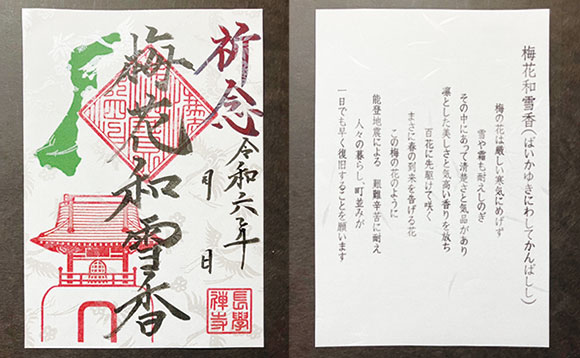 祈念
梅花和雪香
令和六年
月 日
長學
禅寺
梅花和雪香(ばいかゆきにわしてかんばしし)
梅の花は厳しい寒気にめげず
雪や霜も耐えしのぎ
その中にあって清楚さと気品があり
凛とした美しさと気高い香りを放ち
百花に先駆けて咲く
まさに春の到来を告げる花
この梅の花のように
能登地震による 艱難辛苦に耐え
人々の暮らし、町並みが
一日でも早く復旧することを願います